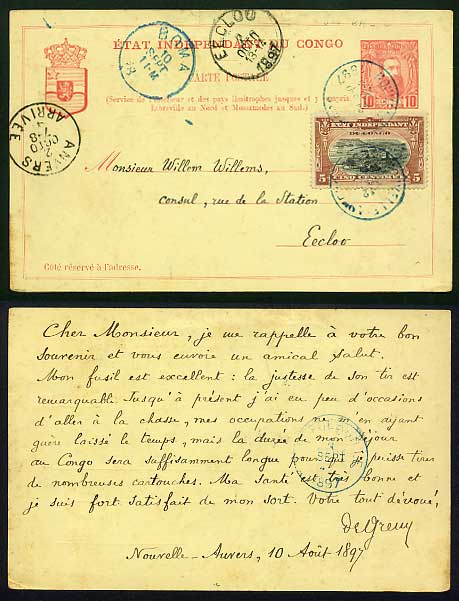 ÉTAT INDÉPENDANT DU CONGO
CARTE POSTALE
(Service de l'intérieur et des pays limitrophes jusques et y compris
Libreville au Nord et Mossamedes au Sud.)
10 10
BOMA
10
SEPT
11-M
EECLOO
1897
ANVERS
ARRIVÉE
7-8
ÉTAT INDÉPENDANT
DU CONGO
5 CINQ CENTIMES 5
Monsieur Willem Willems,
Consul, rue de la Station
Eecloo
Côté réservé à l'adresse.
Cher Monsieur, je me rappelle à votre bon
souvenir et vous envoie un amical salut.
Mon fusil est excellent: la justesse de son tir est
remarquable. Jusqu'à présent j'ai eu peu d'occasions
d'aller à la chasse, mes occupations ne m'en ayant
guère laissé le temps, mais la durée de mon séjour
au Congo sera suffisamment longue pour que je puisse tirer
de nombreuses cartouches. Ma santé est très bonne et
je suis fort satisfait de mon sort. Votre tout dévoué,
Nouvelle-Anvers, 10 Août 1897
SEPT